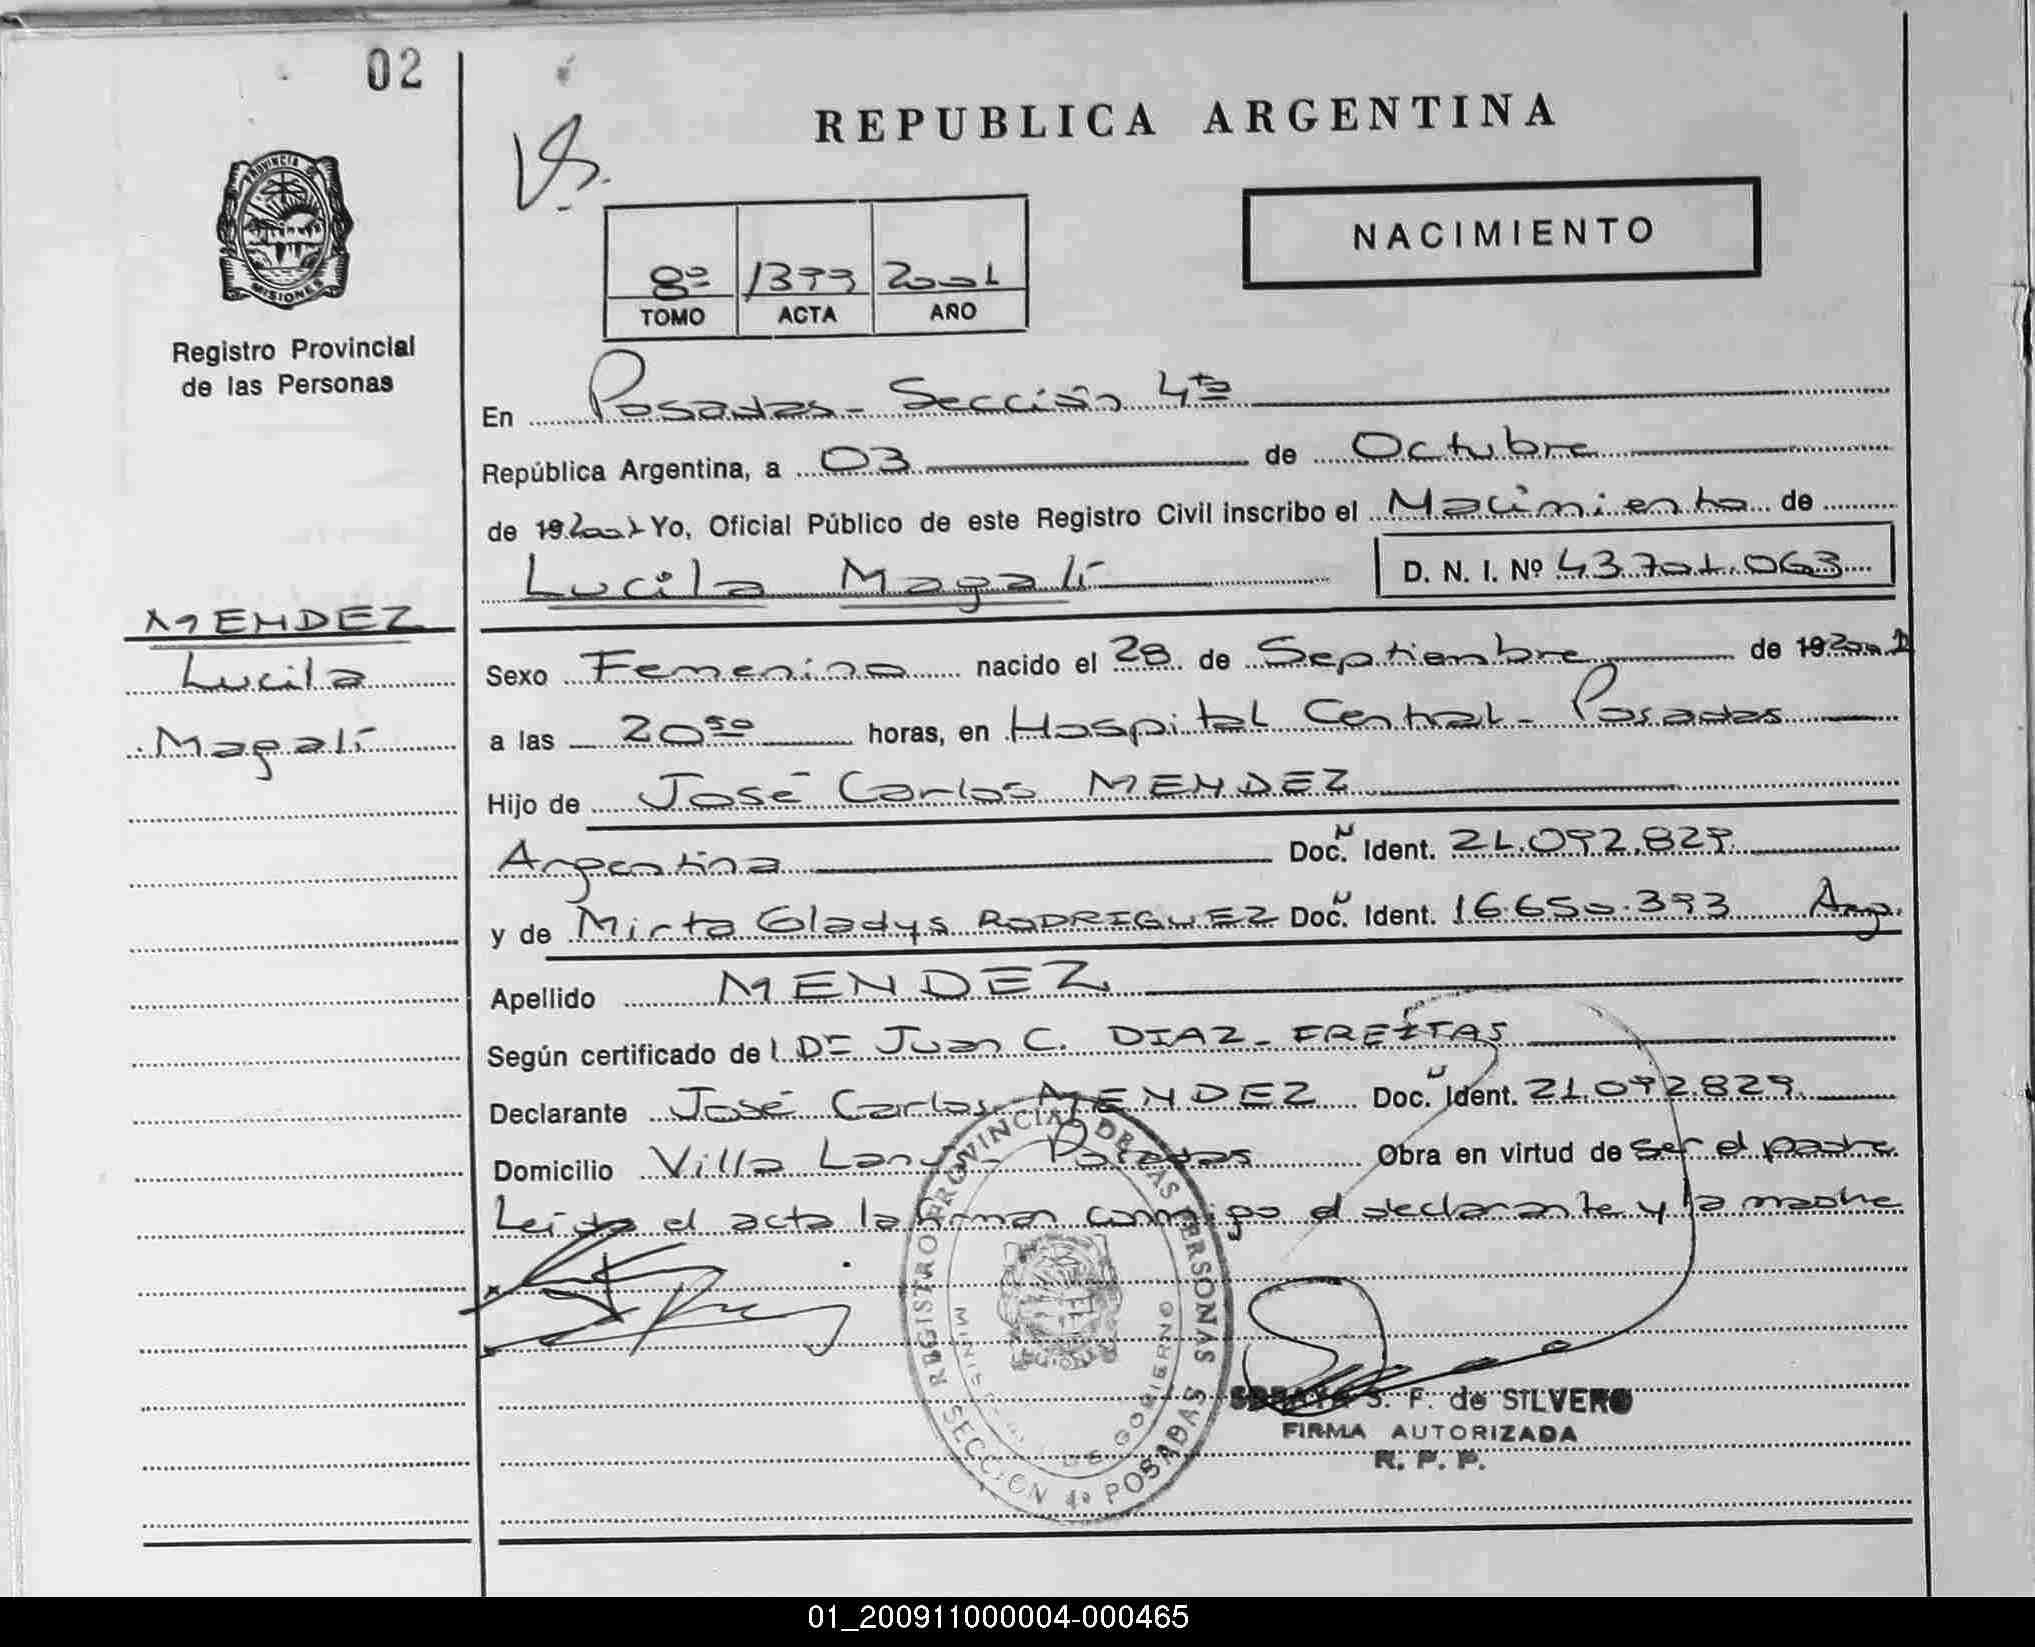 02
REPUBLICA ARGENTINA
NACIMIENTO
PROVINCIA DE
MISIONES
8º 1399 2001
TOMO ACTA AÑO
Registro Provincial
de las Personas
En Posadas - Sección 4ta
República Argentina, a 03 de Octubre
de 19 2001 Yo, Oficial Público de este Registro Civil inscribo el Nacimiento de
Lucila Magalí D. N. I. Nº 43.701.063
MENDEZ
Lucila
Magalí
Sexo Femenino nacido el 28 de Septiembre de 19 2001
a las 20 50 horas, en Hospital Central - Posadas
Hijo de José Carlos MENDEZ
Argentina Doc. N Ident. 21.092.829
y de Mirta Gladys RODRIGUEZ Doc. N Ident. 16.650.393 Arg.
Apellido MENDEZ
Según certificado de l Dr Juan C. DIAZ - FREITAS
Declarante José Carlos MENDEZ Doc. N Ident. 21.092.829
Domicilio Villa Lanús - Posadas Obra en virtud de ser el padre
Leida el acta la firman conmigo el declarante y la madre
REGISTRO PROVINCIAL DE LAS PERSONAS
MINIS DE GOBIERNO
SECCION de POSADAS
S. F. de SILVERO
FIRMA AUTORIZADA
R. P. P.
01_200911000004-000465